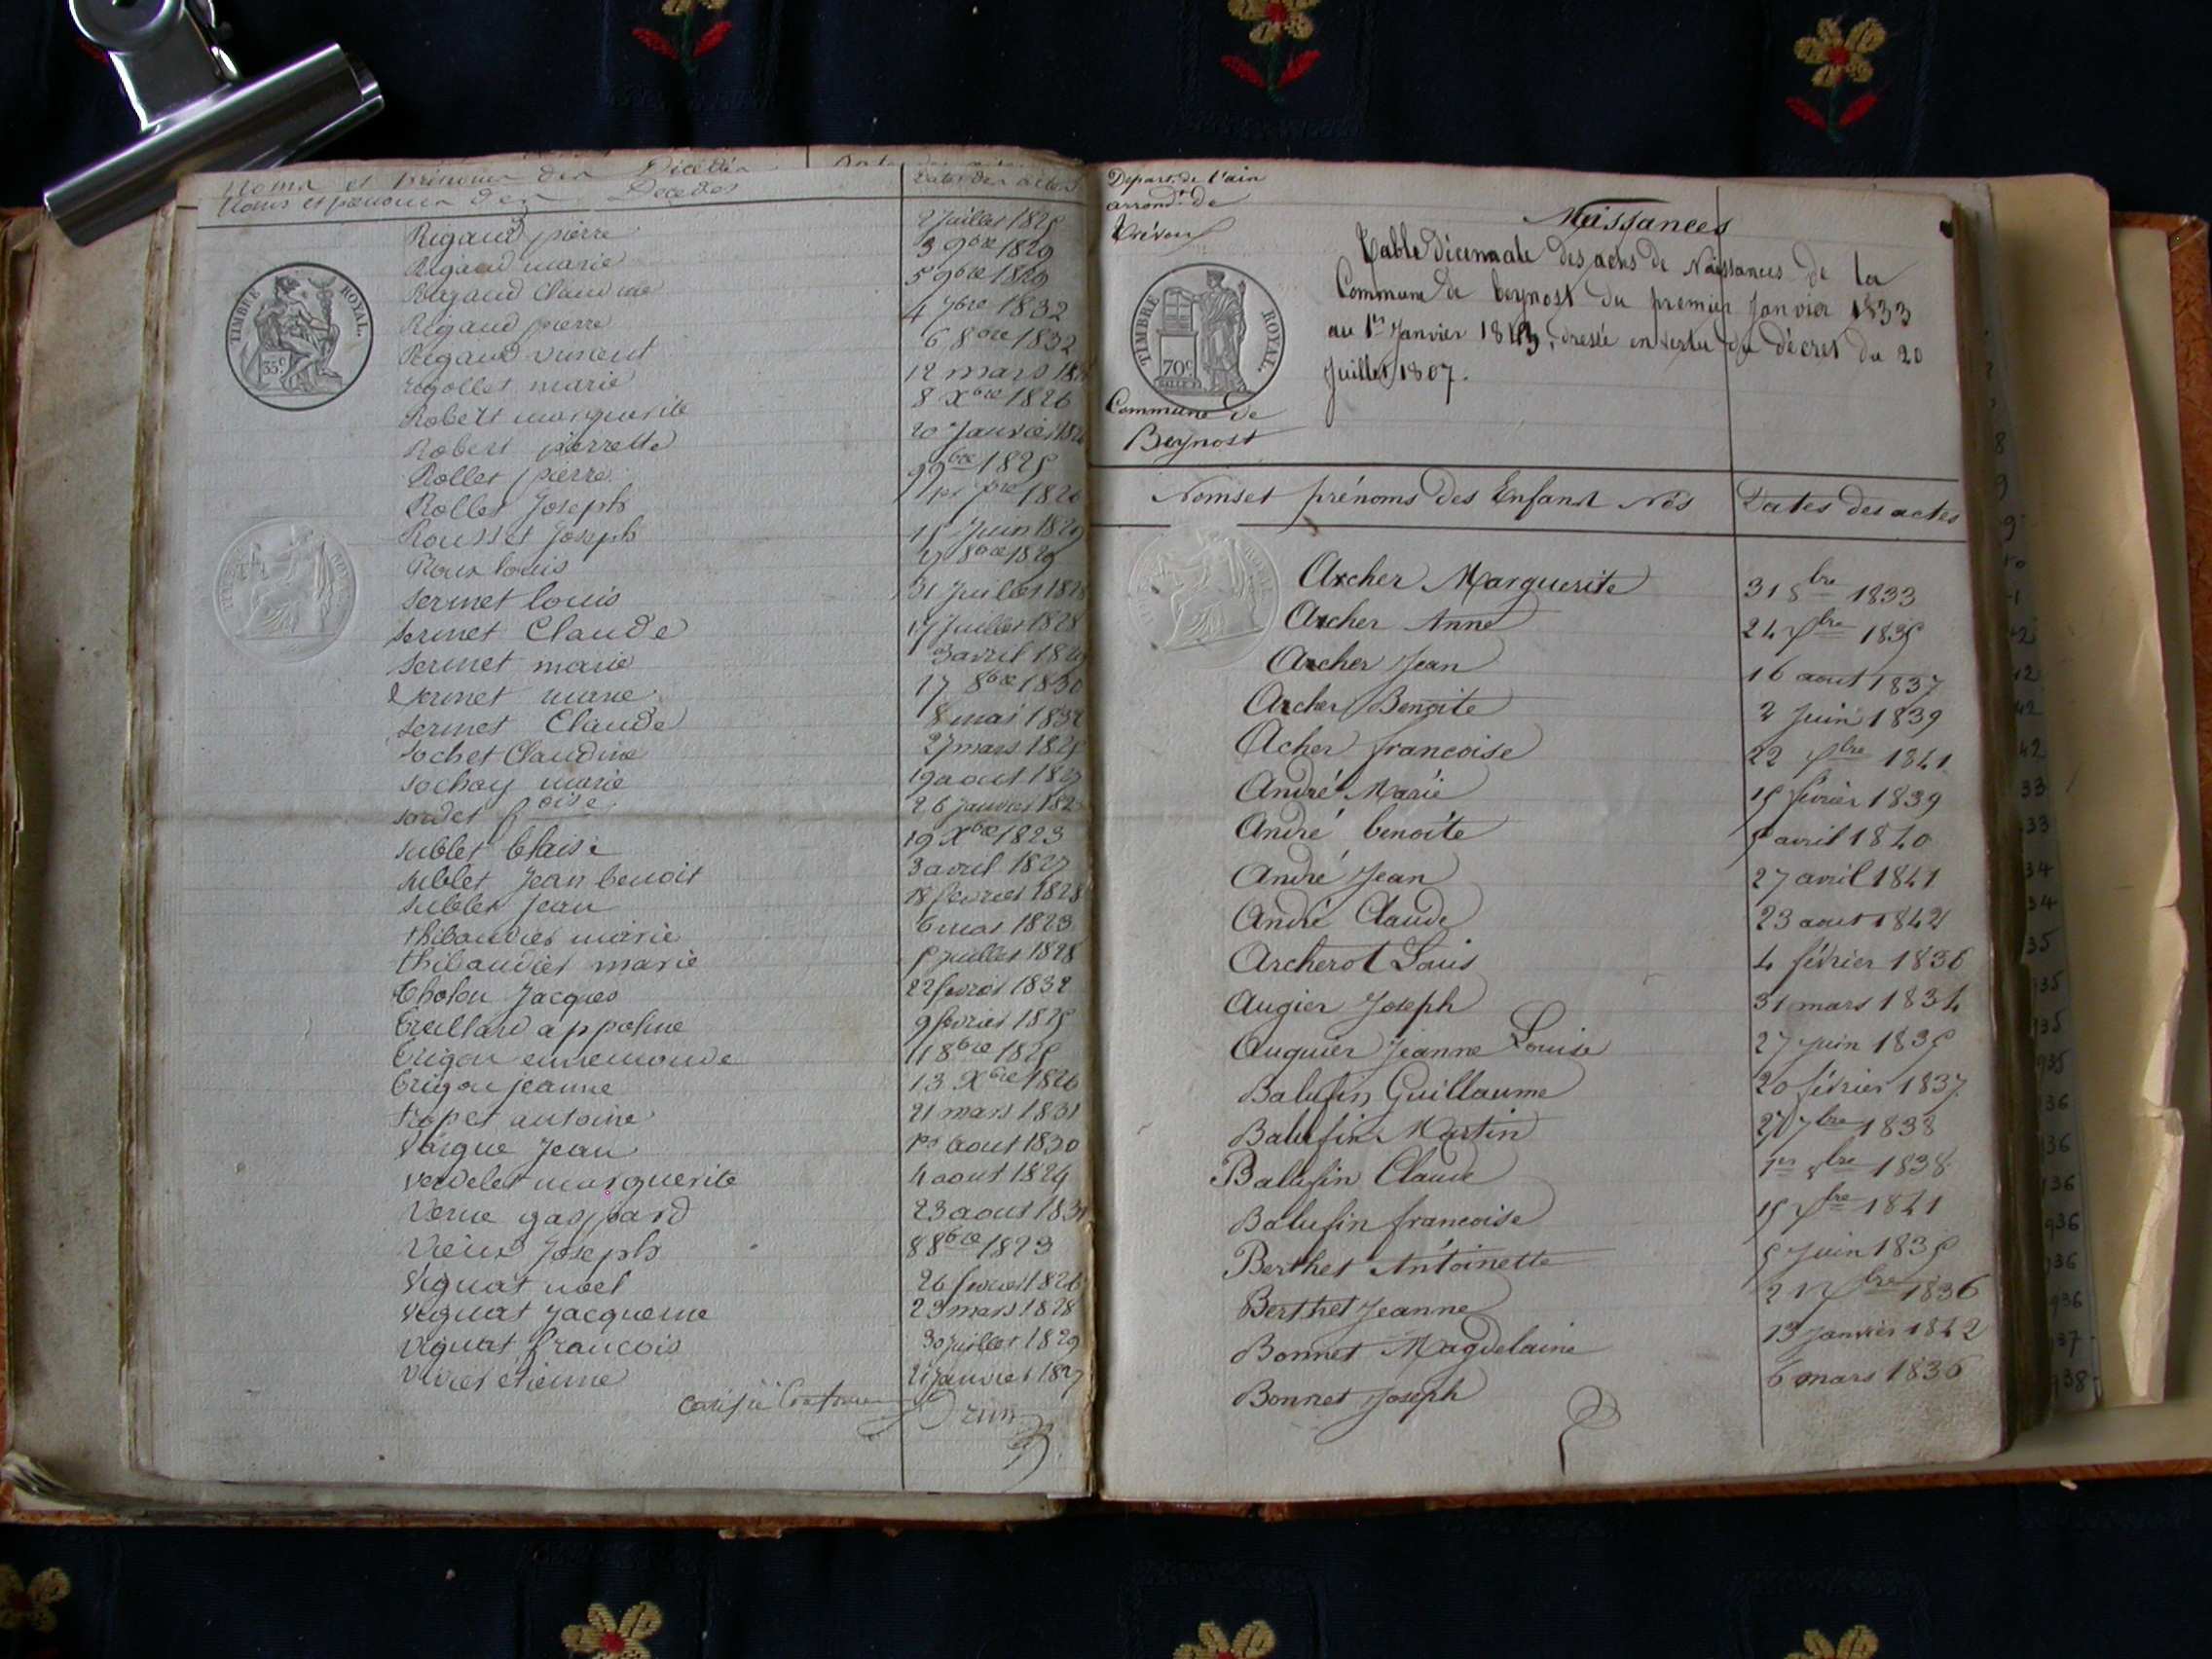 Noms et prénoms des Décédés
Noms et prénoms des Décédés
Dates des actes
TIMBRE ROYAL.
35c
Rigaud pierre 2 Juillet 1825
Rigaud marie 3 9bre 1829
Rigaud Claudine 5 9bre 1829
Rigaud pierre 4 7bre 1832
Rigaud vincent 6 8bre 1832
rogollet marie 12 mars
Robert marguerite 8 Xbre 1826
Robert pierrette 20 Janvier
Rollet pierre 9bre 1825
Rollet Joseph 1er 7bre 1826
Rousset Joseph 15 Juin 1829
Roux louis 8bre 1829
Sermet louis 31 Juillet
Sermet Claude 17 Juillet 1828
Sermet marie 3 avril 1829
Sermet marie 17 8bre 1830
Sermet Claude 8 mai 1832
Sochet Claudine 27 mars 1825
Sochay marie 19 aout
Sordet foise 26 Janvier
Sublet blaise 19 Xbre 1823
Sublet Jean benoit 3 avril 1827
Sublet Jean 18 fevrier 1828
thibaudier marie 6 mai 1823
thibaudier marie 5 Juillet 1828
Tholon Jacques 22 fevrier 1832
trullard appoline 9 fevrier 1825
trigon ennemonde 11 8bre 1825
trigon jeanne 13 Xbre 1826
tropet antoine 21 mars 1831
Vargue Jean 1er aout 1830
verdelet marguerite 4 aout 1829
Verne gaspard 23 aout 1831
Vieux Joseph 8 8bre 1823
Viguat noel 26 fevrier 1826
Viguat Jacquemine 23 mars 1828
Viguat francois 30 juillet 1829
Vivret étienne Janvier 1827
Départ. de l'ain
arrondt de
Trévoux
TIMBRE ROYAL.
70c
Commune de
Beynost
Naissances
Table décennale des actes de Naissances de la
Commune de beynost du premier Janvier 1833
au 1er Janvier 1843, dressée en vertu du décret du 20
Juillet 1807.
Noms et prénoms des Enfant Nés Dates des actes
Archer Marguerite 31 8bre 1833
Archer Anne 24 7bre 1835
Archer Jean 16 aout 1837
Archer Benoite 2 Juin 1839
Acher francoise 22 7bre 1841
André Marie 15 février 1839
André benoite 5 avril 1840
André Jean 27 avril 1841
André Claude 23 aout 1842
Archerot Louis 4 février 1836
Augier Joseph 31 mars 1834
Auguier Jeanne Louise 27 Juin 1835
Balufin Guillaume 20 février 1837
Balufin Martin 27 7bre 1838
Balufin Claude 1er 8bre 1838
Balufin francoise 15 7bre 1841
Berthet Antoinette 5 Juin 1835
Berthet Jeanne 7bre 1836
Bonnet Magdelaine 13 Janvier 1842
Bonnet Joseph 6 mars 1836